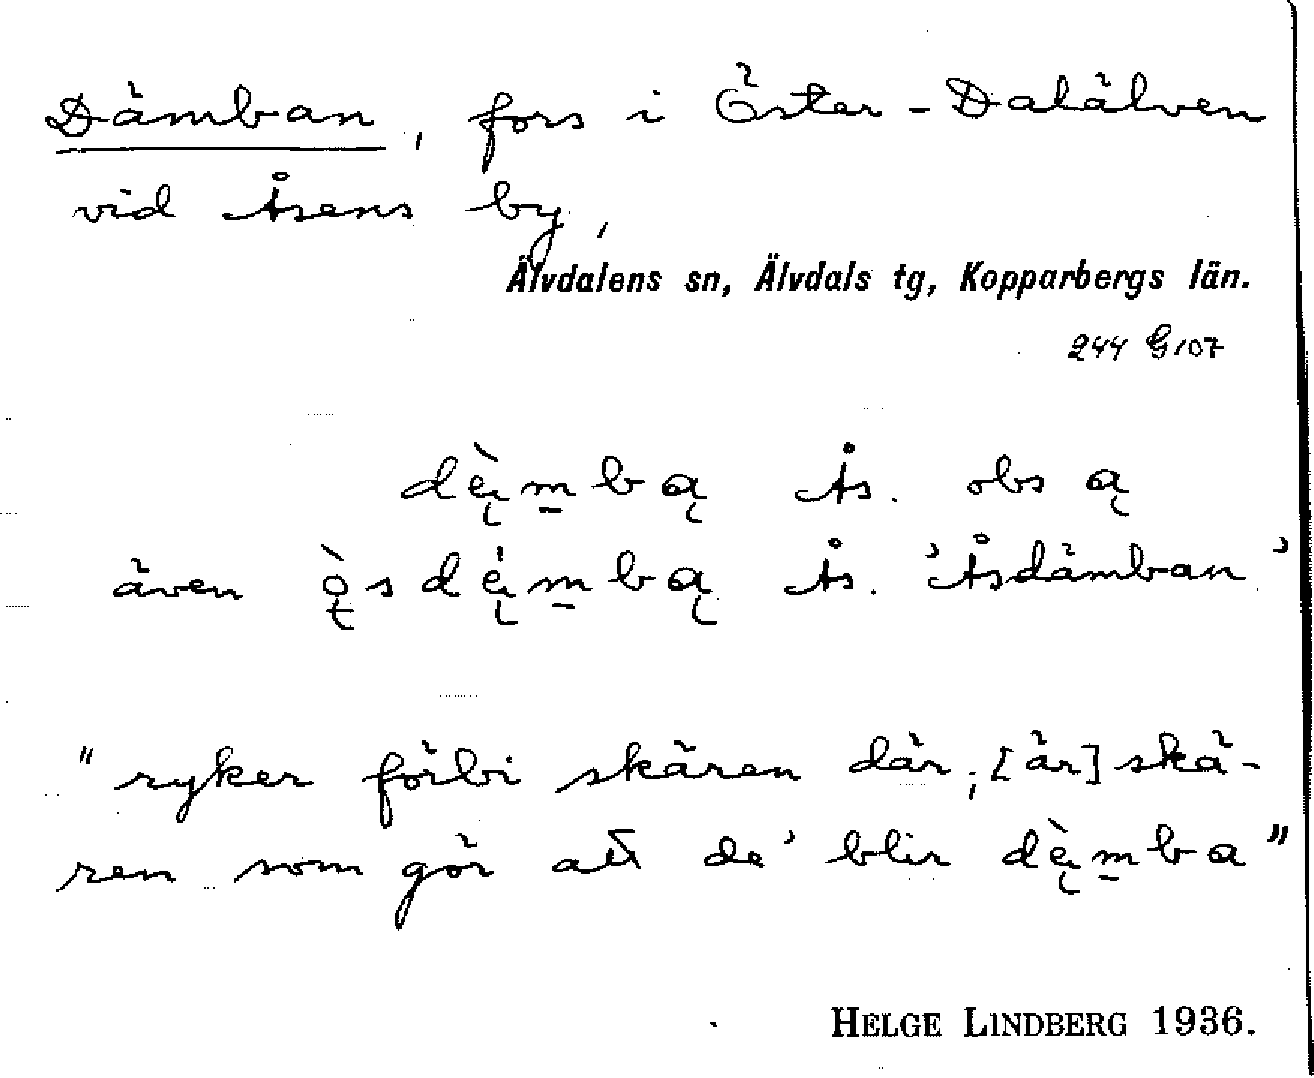 Dämban, fors i Öster-Dalälven
vid Åsens by,
Älvdalens sn, Älvdals tg, Kopparbergs län.
244 G107
dę̀m̲bą Ås. obs ą
även ǫ̀sdę́m̲bą Ås. 'Åsdämban'
"ryker förbi skären där; [är] skä-
ren som gör att de' blir dę̀m̲ba"
HELGE LINDBERG 1936.